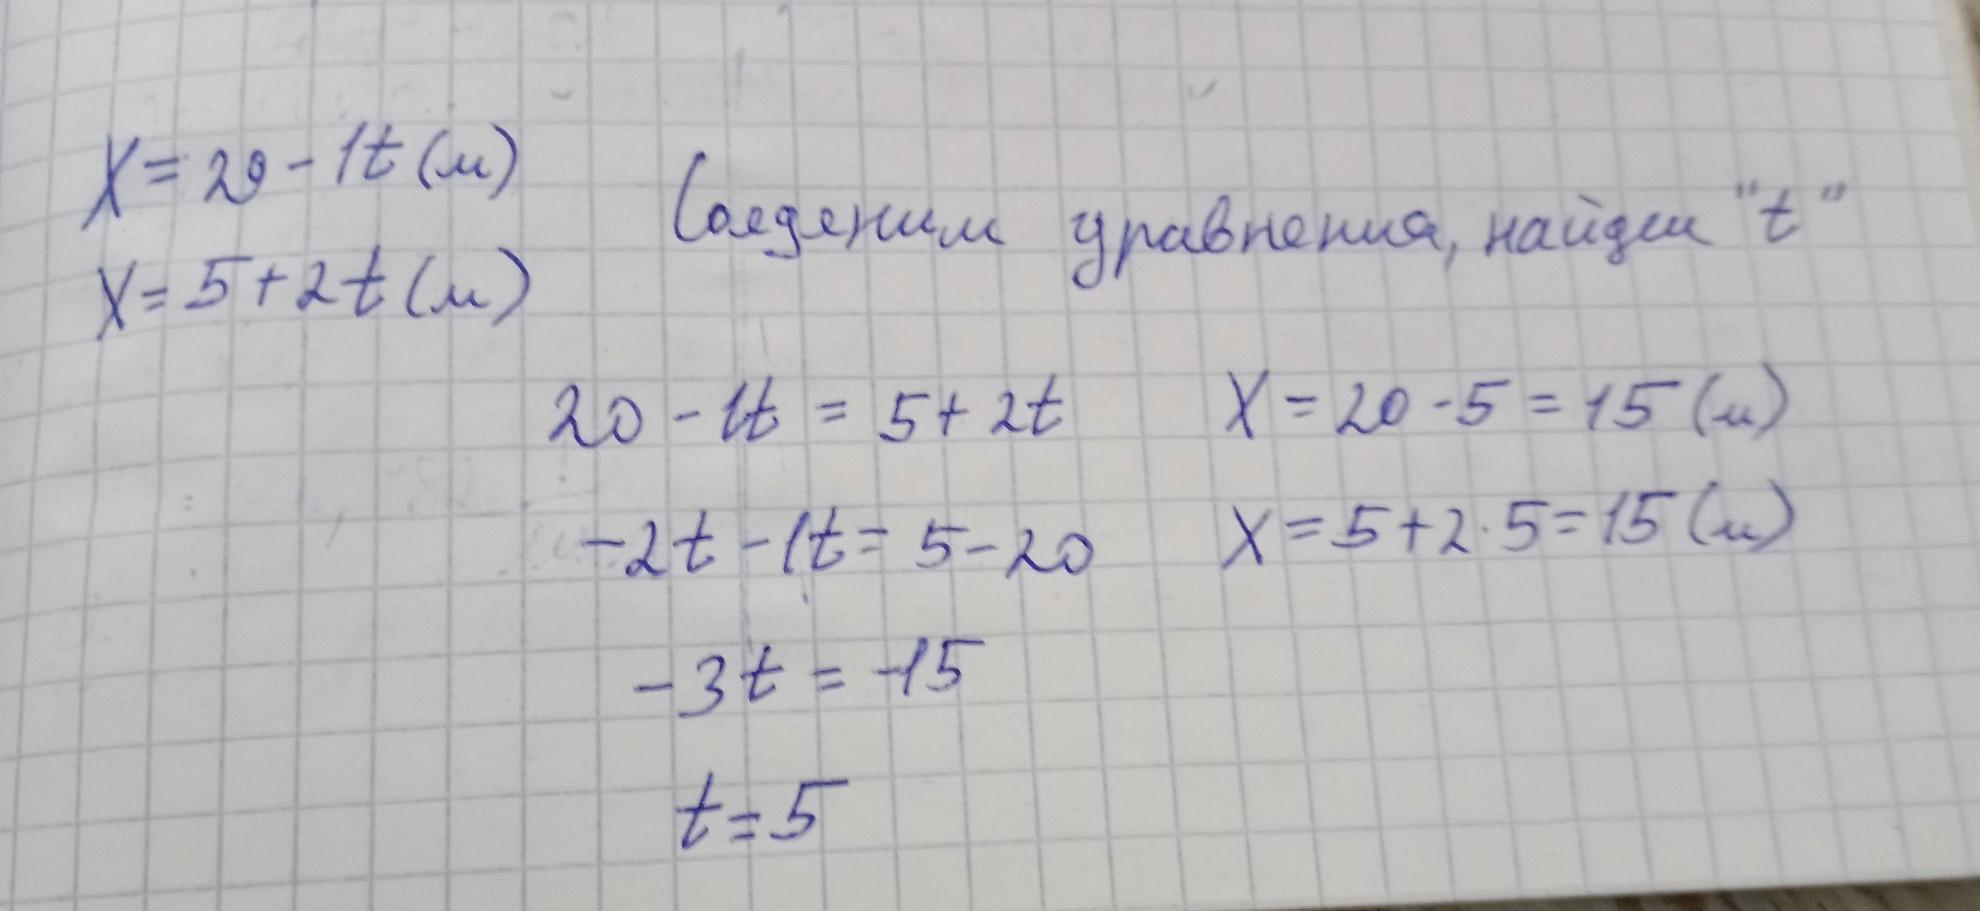 X = 20 - 1t (м)
X = 5 + 2t (м)
Соеденим уравнения, найдем "t"
20 - 1t = 5 + 2t
-2t - 1t = 5 - 20
-3t = -15
t = 5
X = 20 - 5 = 15 (м)
X = 5 + 2 · 5 = 15 (м)